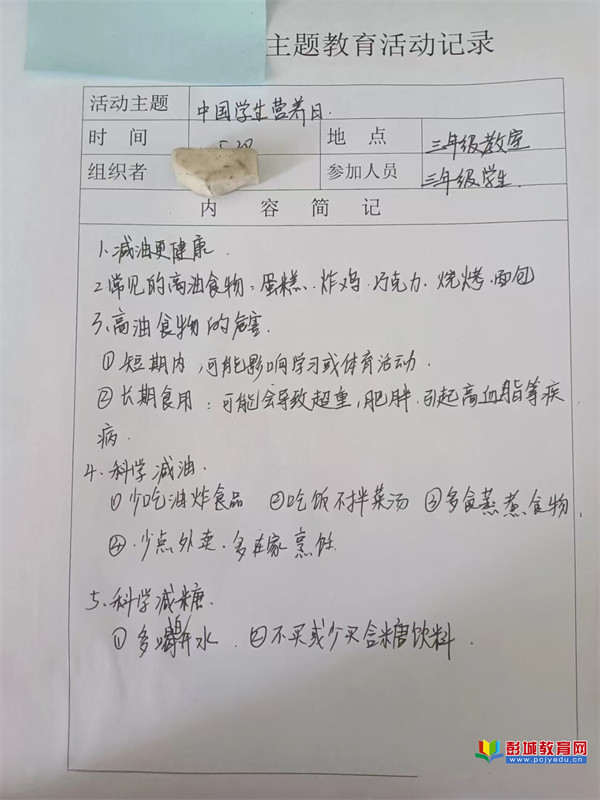 主题教育活动记录
活动主题 中国学生营养日.
时 间 地 点 三年级教室
组织者 参加人员 三年级学生.
内 容 简 记
1.减油更健康.
2.常见的高油食物:蛋糕、炸鸡.巧克力.烧烤.面包
3.高油食物的危害.
①短期内,可能影响学习或体育活动.
②长期食用:可能会导致超重,肥胖.引起高血脂等疾
病.
4.科学减油.
①少吃油炸食品 ②吃饭不拌菜汤 ③多食蒸煮食物,
④.少点外卖.多在家烹饪
5.科学减糖.
①多喝水. ②不买或少买含糖饮料.
彭城教育网
www.pcjyedu.cn